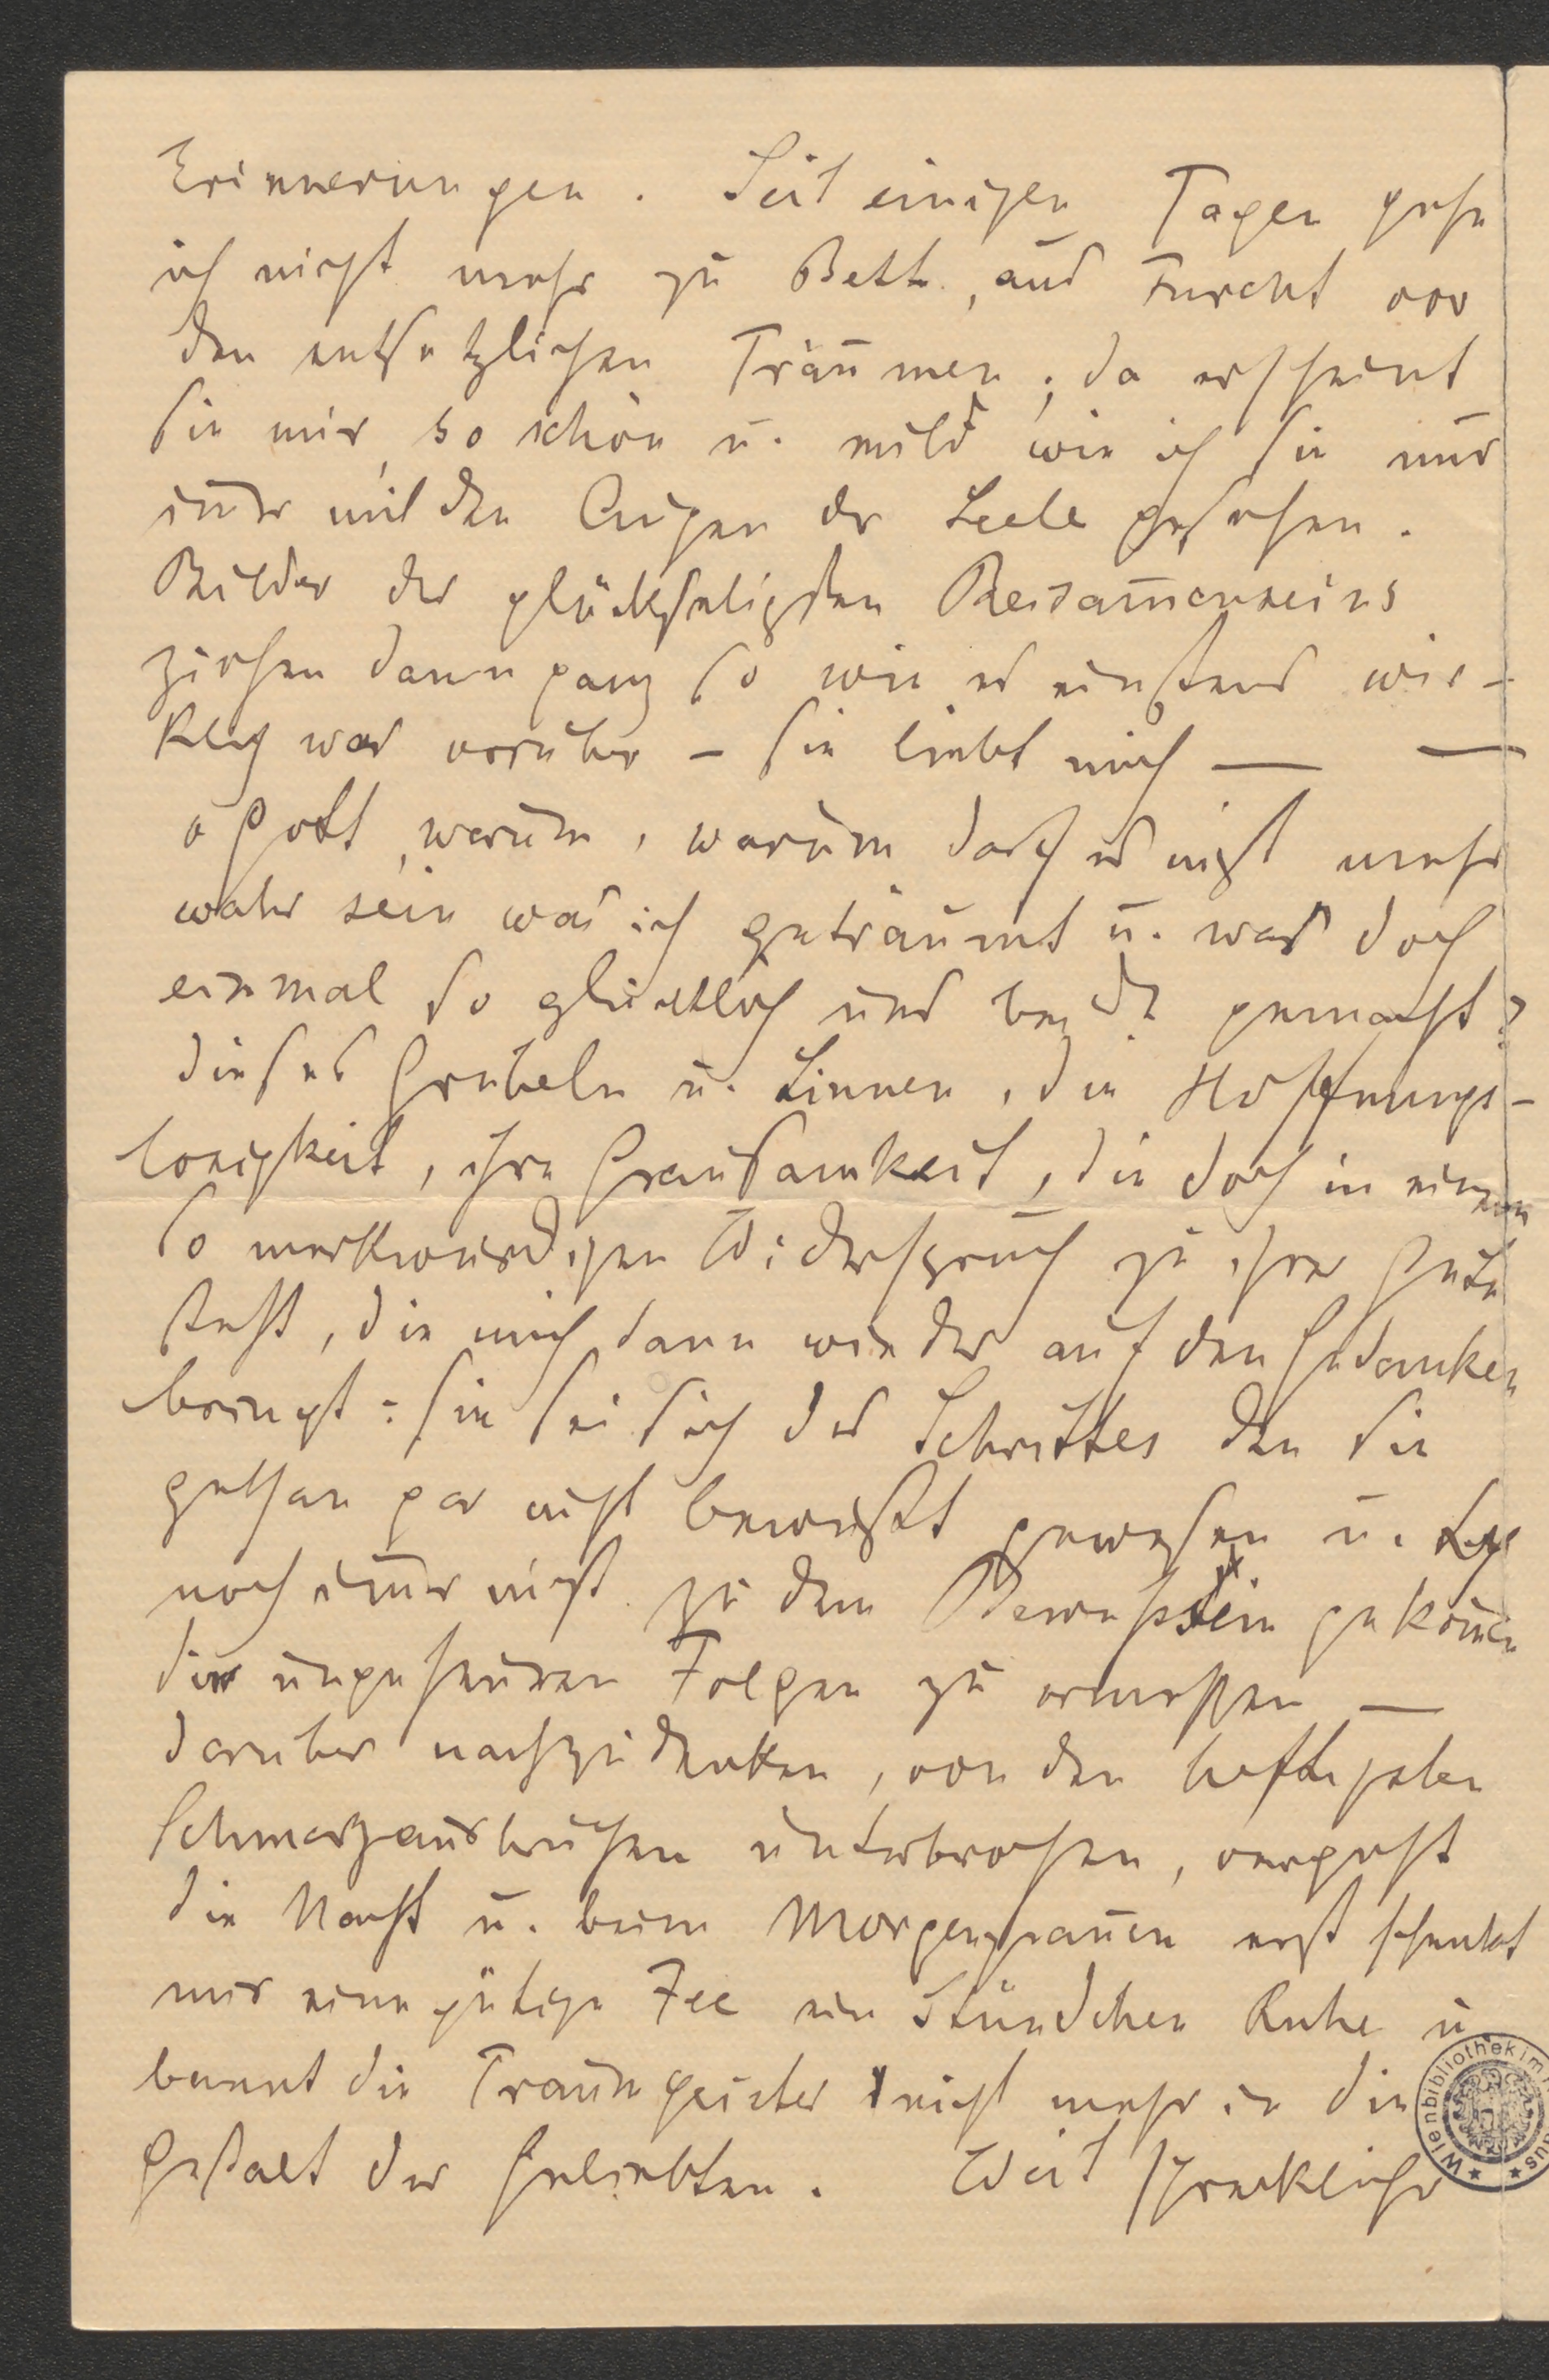 Erinnerungen. Seit einigen Tagen gehe
ich nicht mehr zu Bett, aus Furcht vor
den entsetzlichen Träumen; da erscheint
sie mir, so schön u. mild wie ich sie nur
im̄er mit den Augen der Seele gesehen.
Bilder des glückseligsten Beisam̄enseins
ziehen dann ganz so wie es einstens wir-
klich war vorüber – sie liebt mich — —
o Gott, warum, warum darf es nicht mehr
wahr sein was ich geträumt u. was doch
einmal so glücklich uns beide gemacht?
Dieses Grübeln u. Sinnen, die Hoffnungs-
losigkeit, ihre Grausamkeit, die doch in einem
so merkwürdigen Widerspruch zu ihrer Güte
steht, die mich dann wieder auf den Gedanken
bringt: sie sei sich des Schrittes den sie
gethan gar nicht bewußt gewesen u. sei
noch im̄er nicht zu dem Bewußtsein gekom̄en
die ungeheuren Folgen zu ermessen —
darüber nachzudenken, von den heftigsten
Schmerzausbrüchen unterbrochen, vergeht
die Nacht u. beim Morgengrauen erst schenkt
mir eine gütige Fee ein Stündchen Ruhe u
bannt die Traumgeister nicht mehr in die
Gestalt der Geliebten. Weit schrecklicher
Wienbibliothek im